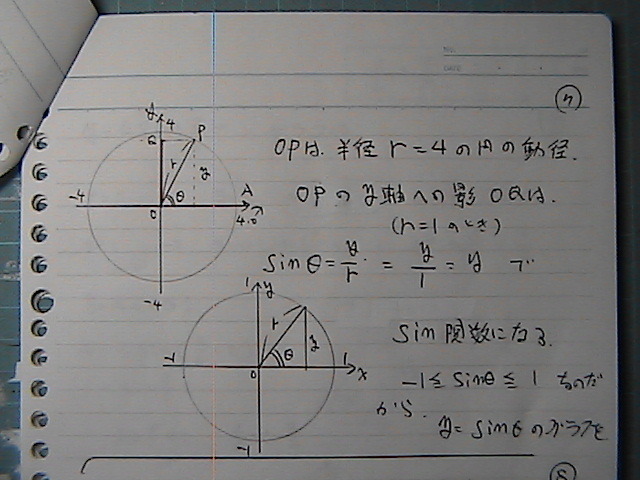 NO.
DATE
y
4
Q
P
r
y
θ
A
-4
0
4.0
x
-4
OPは、半径 r=4 の円の動径.
OPのy軸への影OQは.
(r=1のとき)
sinθ = y/r = y/1 = y で
sin関数になる.
-1≦sinθ≦1 なのだ
から.
y=sinθのグラフを
1
y
r
y
θ
-1
0
1
x
-1